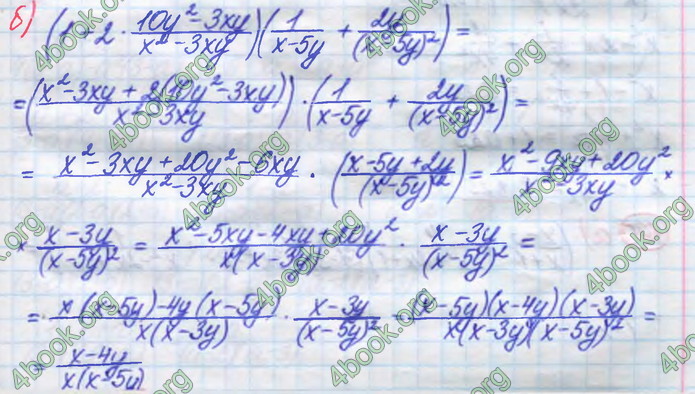 б) (1+2·(10y²-3xy)/(x²-3xy))(1/(x-5y) + 2y/(x-5y)²) =
=((x²-3xy+2(10y²-3xy))/(x²-3xy))·(1/(x-5y) + 2y/(x-5y)²) =
= (x²-3xy+20y²-6xy)/(x²-3xy) · ((x-5y+2y)/(x-5y)²) = (x²-9xy+20y²)/(x²-3xy) ×
× (x-3y)/(x-5y)² = (x²-5xy-4xy+20y²)/(x(x-3y)) · (x-3y)/(x-5y)² =
= (x(x-5y)-4y(x-5y))/(x(x-3y)) · (x-3y)/(x-5y)² = ((x-5y)(x-4y)(x-3y))/(x(x-3y)(x-5y)²) =
= (x-4y)/(x(x-5y))
4book.org